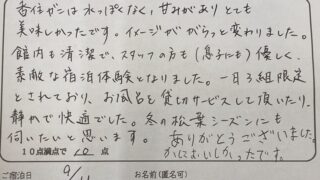 香住ガニは水っぽくなく、甘みがありとても
美味しかったです。イメージががらっと変わりました。
館内も清潔で、スタッフの方も(息子にも)優しく、
素敵な宿泊体験となりました。一日3組限定
とされており、お風呂を貸切サービスして頂いたり、
静かで快適でした。冬の松葉シーズンにも
伺いたいと思います。ありがとうございました。
かにおいしかったです。
10点満点で 10 点
ご宿泊日 9/11 お名前(匿名可)